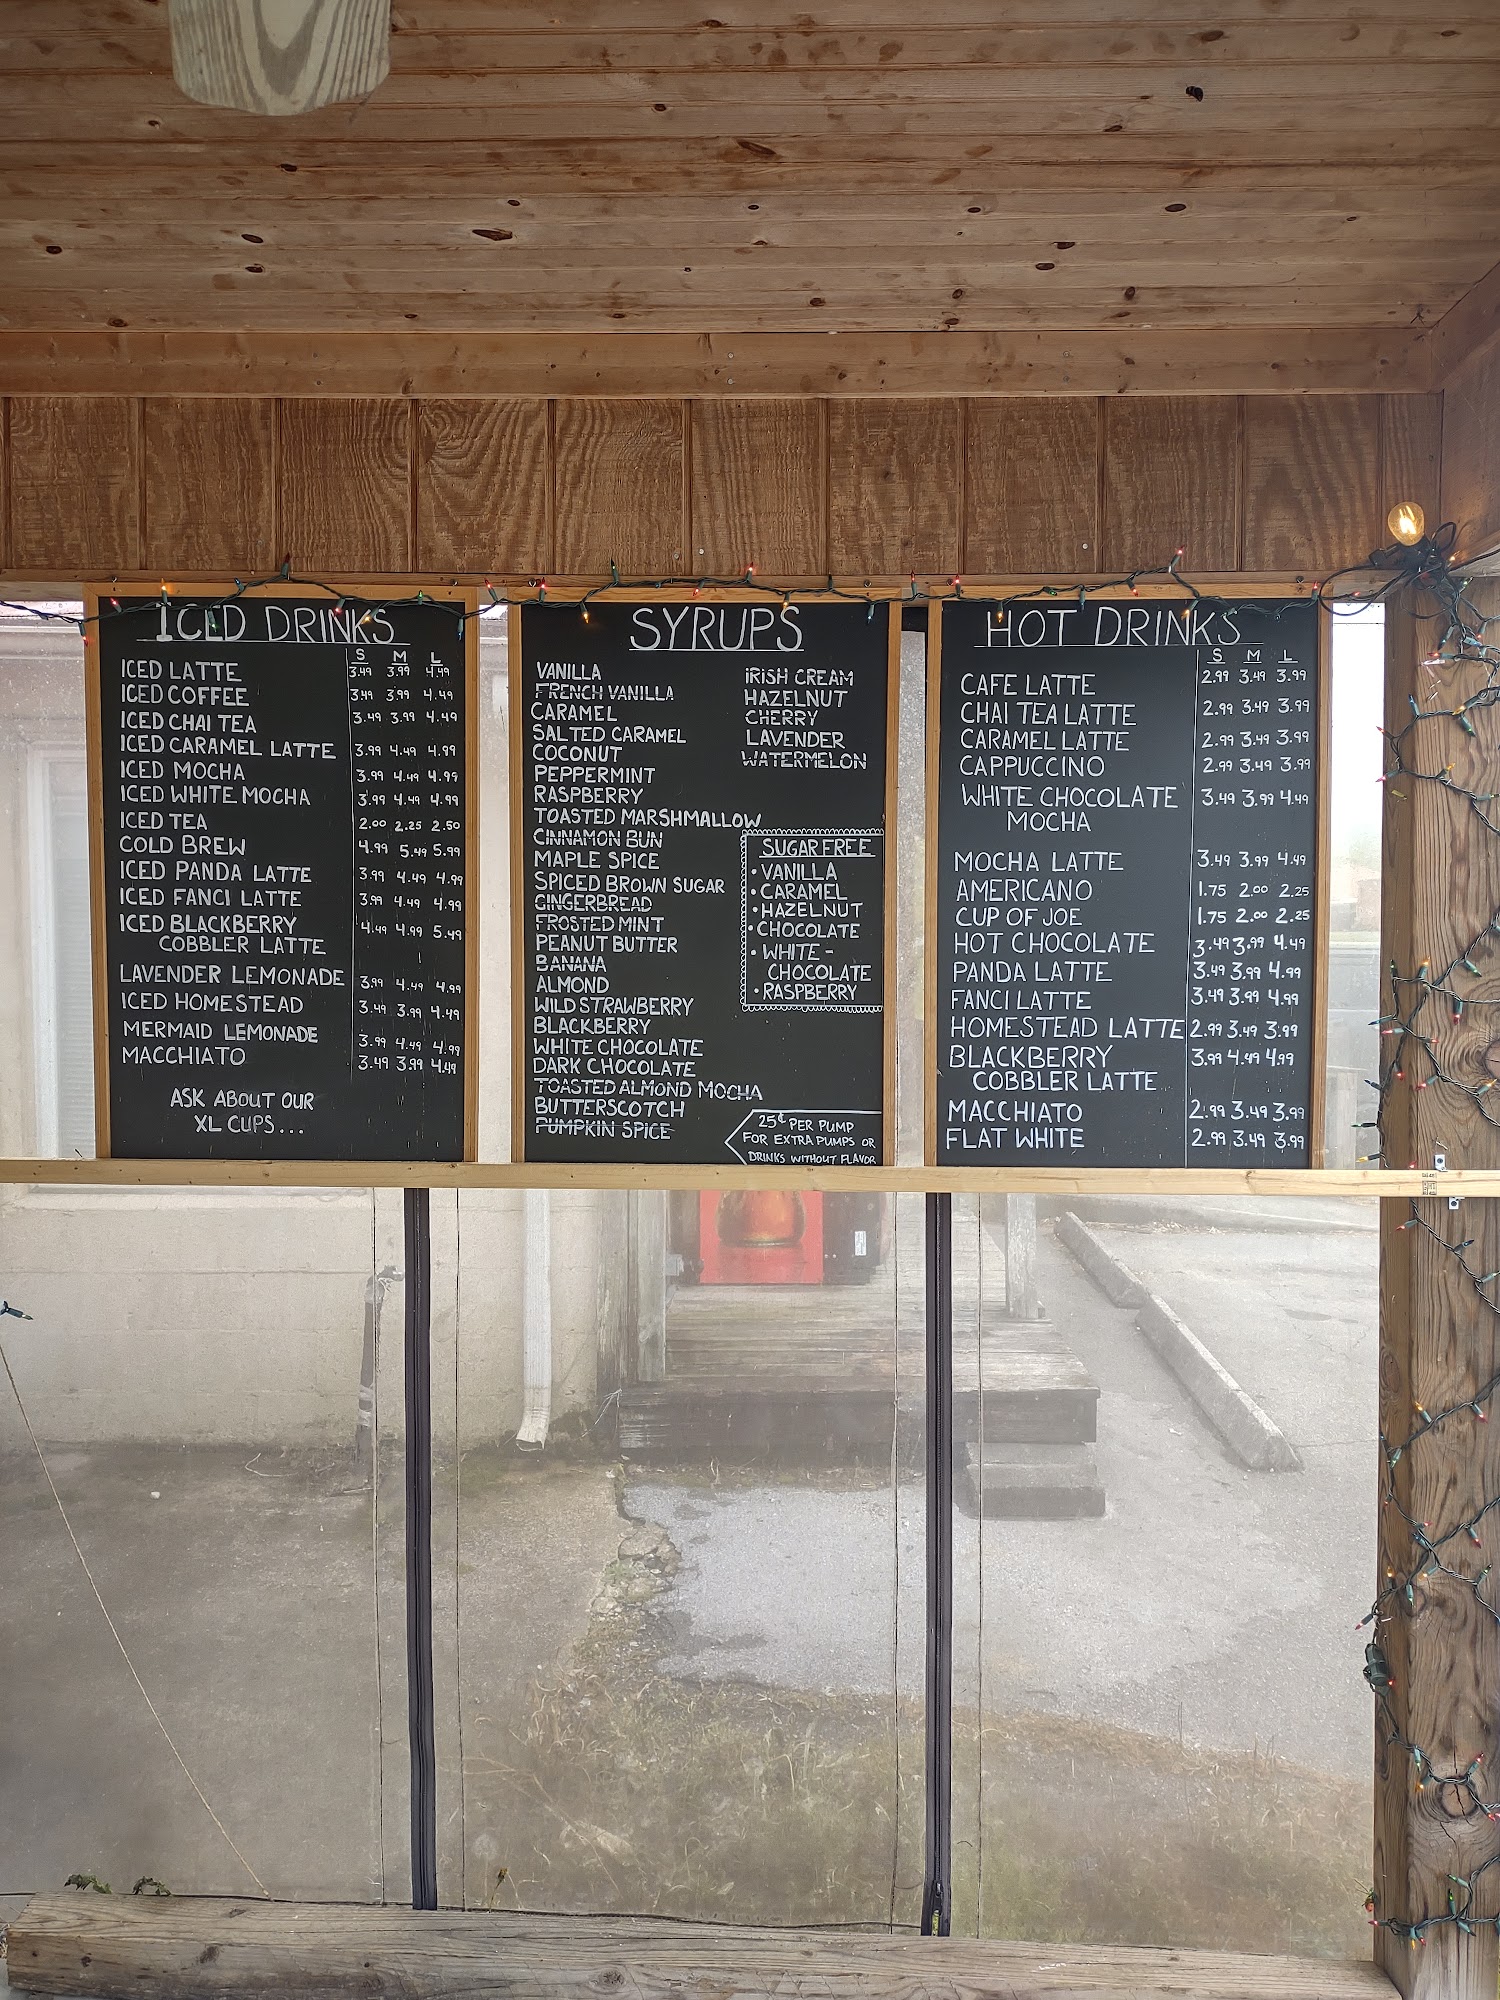 ICED DRINKS
S M L
ICED LATTE 3.49 3.99 4.49
ICED COFFEE 3.49 3.99 4.49
ICED CHAI TEA 3.49 3.99 4.49
ICED CARAMEL LATTE 3.99 4.49 4.99
ICED MOCHA 3.99 4.49 4.99
ICED WHITE MOCHA 3.99 4.49 4.99
ICED TEA 2.00 2.25 2.50
COLD BREW 4.99 5.49 5.99
ICED PANDA LATTE 3.99 4.49 4.99
ICED FANCI LATTE 3.99 4.49 4.99
ICED BLACKBERRY 4.49 4.99 5.49
COBBLER LATTE
LAVENDER LEMONADE 3.99 4.49 4.99
ICED HOMESTEAD 3.49 3.99 4.49
MERMAID LEMONADE 3.99 4.49 4.99
MACCHIATO 3.49 3.99 4.49
ASK ABOUT OUR
XL CUPS...
SYRUPS
VANILLA
FRENCH VANILLA
CARAMEL
SALTED CARAMEL
COCONUT
PEPPERMINT
RASPBERRY
TOASTED MARSHMALLOW
CINNAMON BUN
MAPLE SPICE
SPICED BROWN SUGAR
GINGERBREAD
FROSTED MINT
PEANUT BUTTER
BANANA
ALMOND
WILD STRAWBERRY
BLACKBERRY
WHITE CHOCOLATE
DARK CHOCOLATE
TOASTED ALMOND MOCHA
BUTTERSCOTCH
PUMPKIN SPICE
IRISH CREAM
HAZELNUT
CHERRY
LAVENDER
WATERMELON
SUGAR FREE
• VANILLA
• CARAMEL
• HAZELNUT
• CHOCOLATE
• WHITE -
CHOCOLATE
• RASPBERRY
25¢ PER PUMP
FOR EXTRA PUMPS OR
DRINKS WITHOUT FLAVOR
HOT DRINKS
S M L
CAFE LATTE 2.99 3.49 3.99
CHAI TEA LATTE 2.99 3.49 3.99
CARAMEL LATTE 2.99 3.49 3.99
CAPPUCCINO 2.99 3.49 3.99
WHITE CHOCOLATE 3.49 3.99 4.49
MOCHA
MOCHA LATTE 3.49 3.99 4.49
AMERICANO 1.75 2.00 2.25
CUP OF JOE 1.75 2.00 2.25
HOT CHOCOLATE 3.49 3.99 4.49
PANDA LATTE 3.49 3.99 4.99
FANCI LATTE 3.49 3.99 4.99
HOMESTEAD LATTE 2.99 3.49 3.99
BLACKBERRY 3.99 4.49 4.99
COBBLER LATTE
MACCHIATO 2.99 3.49 3.99
FLAT WHITE 2.99 3.49 3.99